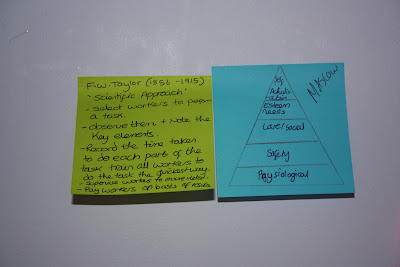 F.W. Taylor (1856-1915)
'Scientific Approach'
- select workers to perform
a task.
- observe them + Note the
key elements.
- Record the time taken
to do each part of the
task train all workers to
do the task the quickest way.
- supervise workers to
- Pay workers on basis of results
Maslow
Self
Actuali
sation
Esteem
needs
Love/social
Safety
Physiological